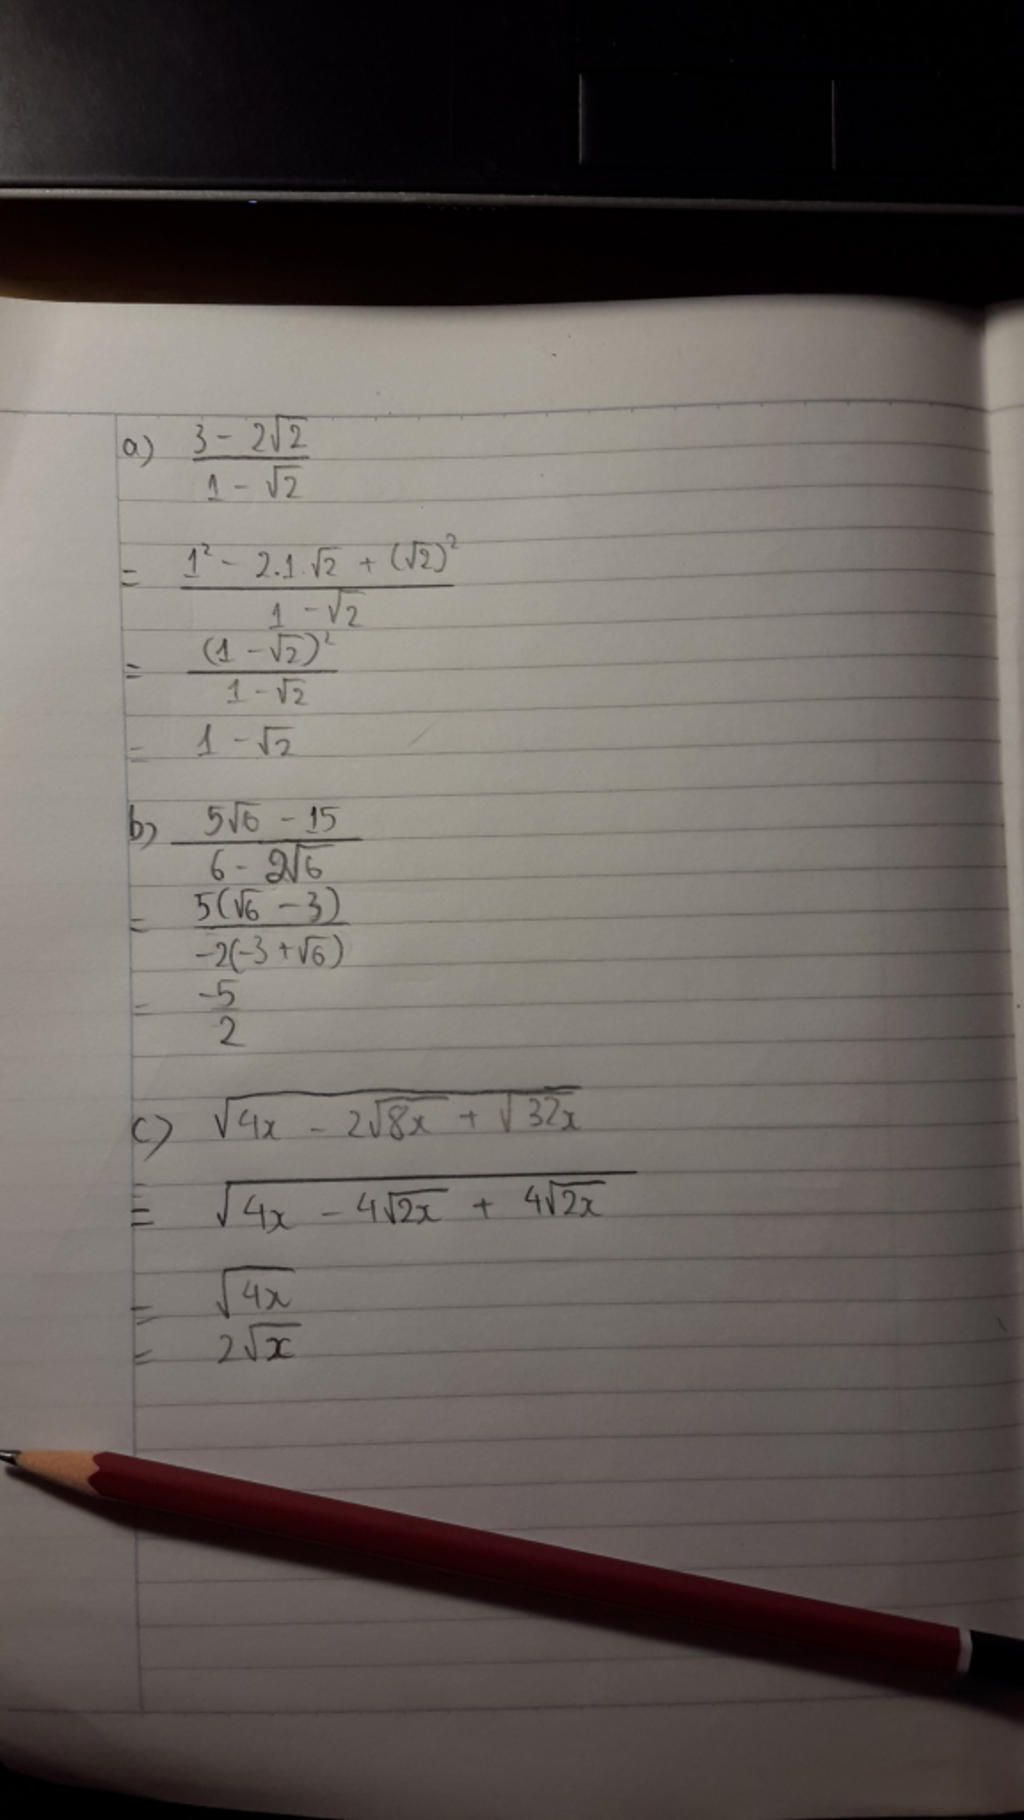 a) \frac{3 - 2\sqrt{2}}{1 - \sqrt{2}}
= \frac{1^2 - 2.1.\sqrt{2} + (\sqrt{2})^2}{1 - \sqrt{2}}
= \frac{(1 - \sqrt{2})^2}{1 - \sqrt{2}}
= 1 - \sqrt{2}
b) \frac{5\sqrt{6} - 15}{6 - 2\sqrt{6}}
= \frac{5(\sqrt{6} - 3)}{-2(-3 + \sqrt{6})}
= \frac{-5}{2}
c) \sqrt{4x - 2\sqrt{8x} + \sqrt{32x}}
= \sqrt{4x - 4\sqrt{2x} + 4\sqrt{2x}}
= \sqrt{4x}
= 2\sqrt{x}